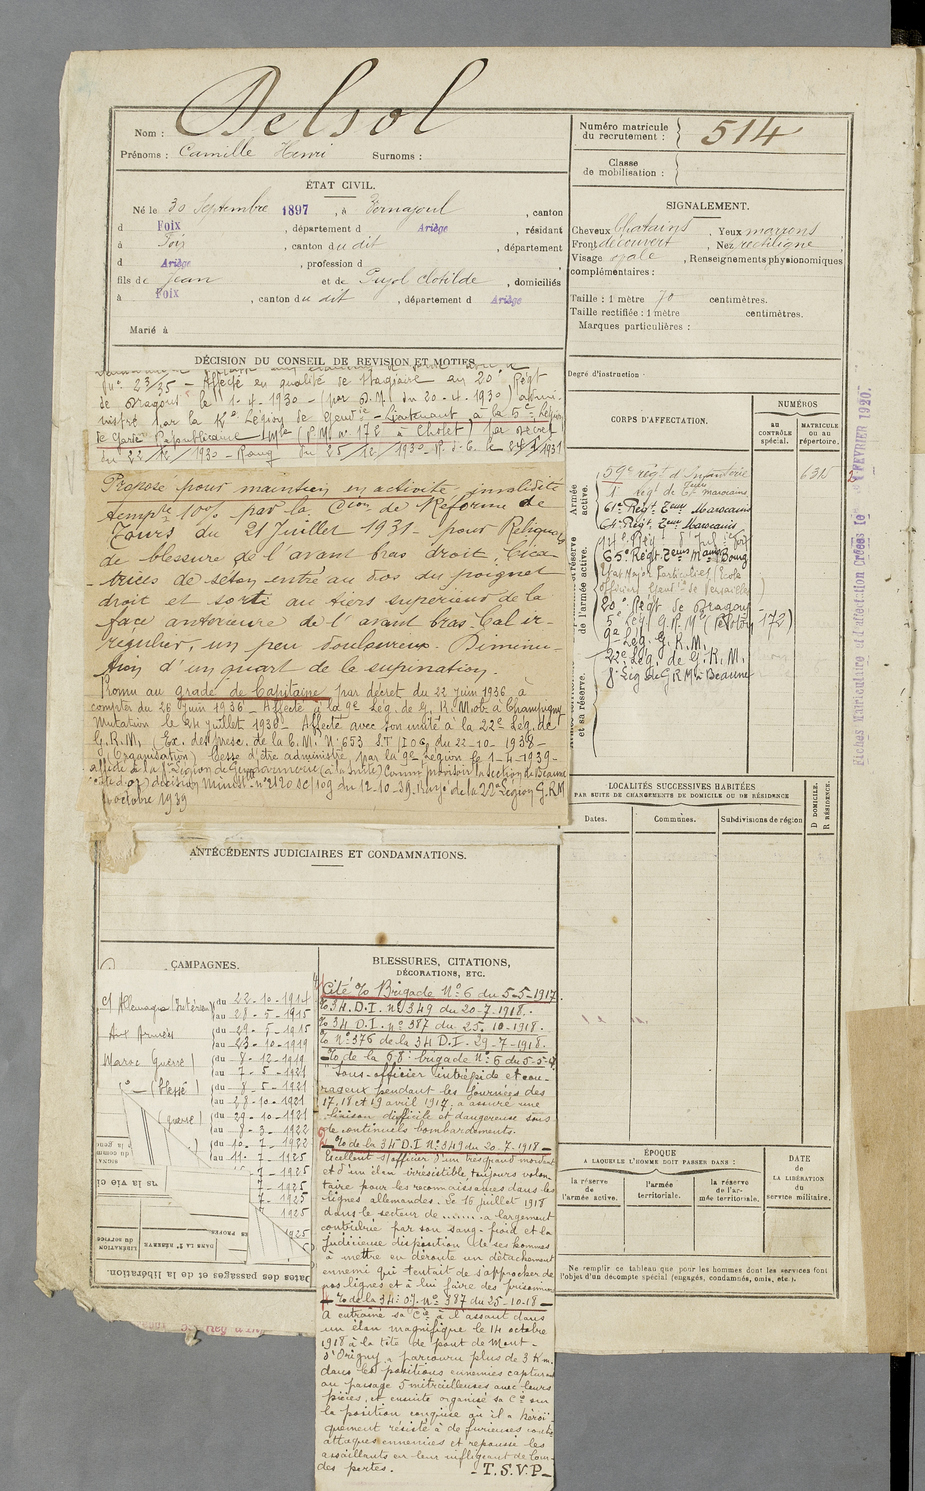 Nom : Delsol
Prénoms : Camille Henri Surnoms :
Numéro matricule du recrutement : 514
Classe de mobilisation :
ÉTAT CIVIL.
Né le 30 Septembre 1897, à Vernajoul, canton
d Foix, département d Ariège, résidant
à Foix, canton du dit, département
d Ariège, profession d
fils de Jean et de Pujol Clotilde, domiciliés
à Foix, canton du dit, département d Ariège
Marié à
SIGNALEMENT.
Cheveux Chatains. Yeux marrons
Front découvert, Nez rectiligne
Visage ovale, Renseignements physionomiques
complémentaires :
Taille : 1 mètre 70 centimètres.
Taille rectifiée : 1 mètre centimètres.
Marques particulières :
Degré d'instruction
DÉCISION DU CONSEIL DE REVISION ET MOTIFS
n° 23/35 - Affecté en qualité de Stagiaire au 20e Régt
de Dragons le 1-4-1930 - (par D.M. du 20-4-1930) admi-
nistré par la Légion de Gendie - Lieutenant à la 5e Légion
de Garde Républicaine Mle (P.M. n° 172 à Cholet) par décret
du 22/12/1930 - Rang du 25/12/1930
Proposé pour maintien en activité invalidité
tempre 10% par la Cion de Réforme de
Tours du 21 Juillet 1931 - pour Reliquat
de blessure de l'avant bras droit ; Cica-
-trices de séton entré au dos du poignet
droit et sorti au tiers supérieur de la
face antérieure de l'avant bras. Cal ir-
régulier, un peu douloureux. Diminu-
tion d'un quart de la supination.
Promu au grade de Capitaine par décret du 22 juin 1936 à
compter du 26 juin 1936 - Affecté à la 9e Lég. de G. R. Mob. à Champigny
Mutation le 24 juillet 1938 - Affecté avec son unité à la 22e Lég. de
G. R. M. (Ex. des presc. de la C. M. N° 653 du 22-10-1938 -
(Organisation) Cesse d'être administré par la 9e Légion le 1-4-1939 -
affecté à la 8e Légion de Gendarmerie (à la suite) Comm provisoir la section de Beaune
(Côte d'or) décision Minist. n° 2120 du 12-10-39. Rayé de la 22e Légion G.R.M
octobre 1939
CORPS D'AFFECTATION.
NUMÉROS
AU CONTRÔLE spécial.
MATRICULE ou au répertoire.
Armée active.
et réserve de l'armée active.
et sa réserve.
59e régt d'Infanterie 6315
1er rég. de marocains
61e Régt Teurs Marocains
64e Régt Teurs Marocains
65e Régt Teurs Mains Bourg
Etat Major Particulier (Ecole
officiers Gendie de Versailles)
20e Régt de Dragons
5e Lég G. R. Mle (Peloton 172)
9e Lég. G. R. M.
22e Lég. de G. R. M.
8e Lég de G R M à Beaune
Fiches Matriculaire et d'affectation Créées le FEVRIER 1920.
LOCALITÉS SUCCESSIVES HABITÉES
PAR SUITE DE CHANGEMENTS DE DOMICILE OU DE RÉSIDENCE
Dates. Communes. Subdivisions de région
D DOMICILE. R RÉSIDENCE.
ANTÉCÉDENTS JUDICIAIRES ET CONDAMNATIONS.
CAMPAGNES.
c/ Allemagne (Intérieur) du 22-10-1914
au 28-5-1915
Aux Armées du 29-5-1915
au 23-10-1919
Maroc Guerre du 8-12-1919
au 7-5-1921
do (blessé) du 8-5-1921
au 28-10-1921
(guerre) du 29-10-1921
au 8-3-1922
du 10-7-1922
au 11-7-1925
7-1925
7-1925
7-1925
1925
1925
DANS LA 2e RÉSERVE
LIBÉRATION du service
Dates des passages et de la libération.
BLESSURES, CITATIONS,
DÉCORATIONS, ETC.
Cité %o Brigade N° 6 du 5-5-1917.
%o 34 D.I. n° 349 du 20-7-1918.
%o 34 D.I. n° 387 du 25-10-1918.
%o N° 376 de la 34 D.I - 29-7-1918.
- %o de la 68e brigade N° 6 du 5-5-17
"Sous-officier intrépide et cou-
rageux pendant les journées des
17, 18 et 19 avril 1917, a assuré une
liaison difficile et dangereuse sous
de continuels bombardements.
- %o de la 34 D.I N° 349 du 20-7-1918 -
Excellent s/officier d'un très grand mordant
et d'un élan irrésistible toujours volon-
taire pour les reconnaissances dans les
lignes allemandes. Le 16 juillet 1918
dans le secteur de ....... a largement
contribué par son sang-froid et la
judicieuse disposition de ses hommes
à mettre en déroute un détachement
ennemi qui tentait de s'approcher de
nos lignes et à lui faire des prisonniers
- %o de la 34e D.I. N° 387 du 25-10-18 -
A entraîné sa Cie à l'assaut dans
un élan magnifique le 14 octobre
1918 à la tête de pont de Mont-
d'Origny, a parcouru plus de 3 Km.
dans les positions ennemies capturant
au passage 5 mitrailleuses avec leurs
pièces, et ensuite organisé sa Cie sur
la position conquise où il a héroï-
quement résisté à de furieuses contre
attaques ennemies et repoussé les
assaillants en leur infligeant de lour-
des pertes. - T.S.V.P -
ÉPOQUE
A LAQUELLE L'HOMME DOIT PASSER DANS :
la réserve de l'armée active.
l'armée territoriale.
la réserve de l'armée territoriale.
DATE de LA LIBÉRATION du service militaire.
Ne remplir ce tableau que pour les hommes dont les services font
l'objet d'un décompte spécial (engagés, condamnés, omis, etc.).